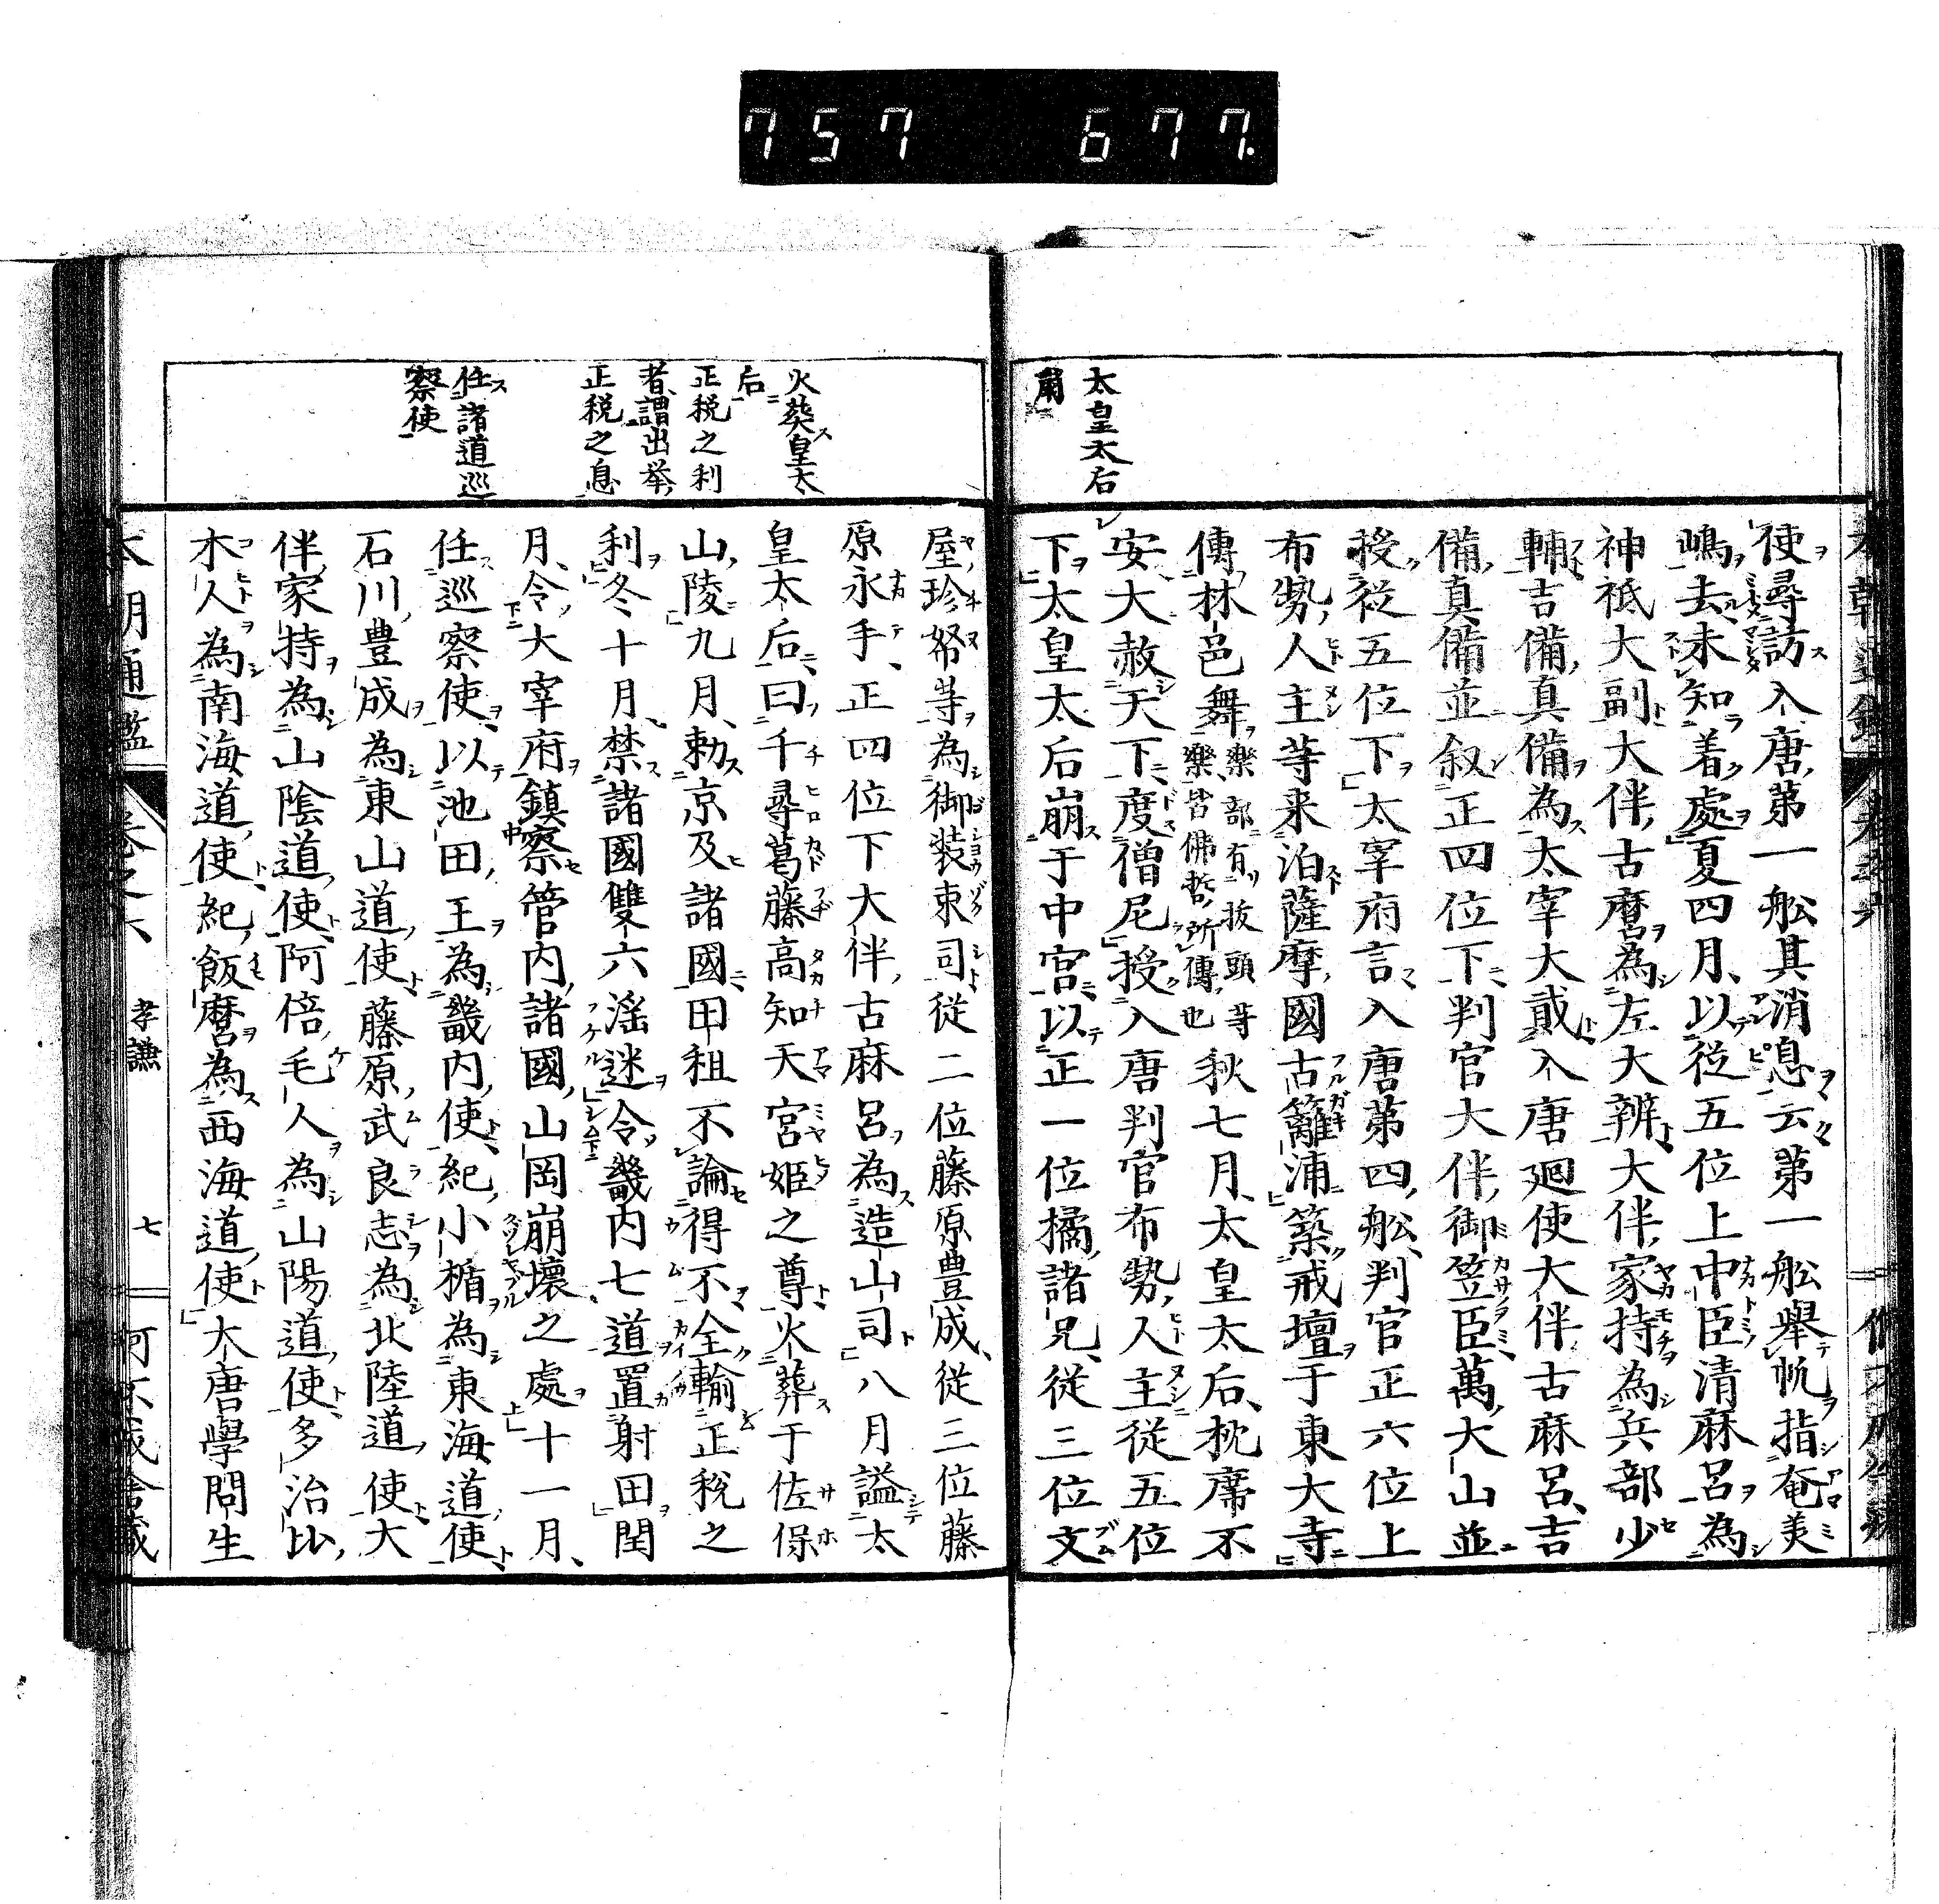 757 677.
太皇太后
崩
使尋訪入唐第一舩其消息云第一舩舉帆指奄美
嶋去未知着處夏四月以從五位上中臣清麻呂為
神祇大副大伴古麿為左大辨大伴家持為兵部少
輔吉備真備為太宰大貳入唐廻使大伴古麻呂吉
備真備並叙正四位下判官大伴御笠臣萬大山並
授從五位下太宰府言入唐第四舩判官正六位上
布勢人主等来泊薩摩國古籬浦築戒壇于東大寺
傳林邑舞樂部有抜頭等樂皆佛哲所傳也秋七月太皇太后枕席不
安大赦天下度僧尼授入唐判官布勢人主從五位
下太皇太后崩于中宮以正一位橘諸兄從三位文
火葬皇太
后
正税之利
者謂出挙
正税之息
任諸道巡
察使
屋珍努等為御装束司從二位藤原豊成從三位藤
原永手正四位下大伴古麻呂為造山司八月謚太
皇太后曰千尋葛藤高知天宮姫之尊火葬于佐保
山陵九月勅京及諸國田租不論得不全輸正税之
利冬十月禁諸國雙六滛迷令畿内七道置射田閏
月令大宰府鎮察管内諸國山岡崩壞之處十一月
任巡察使以池田王為畿内使紀小楯為東海道使
石川豊成為東山道使藤原武良志為北陸道使大
伴家持為山陰道使阿倍毛人為山陽道使多治比
木人為南海道使紀飯麿為西海道使大唐學問生
本朝通鑑 卷之六 孝謙 七